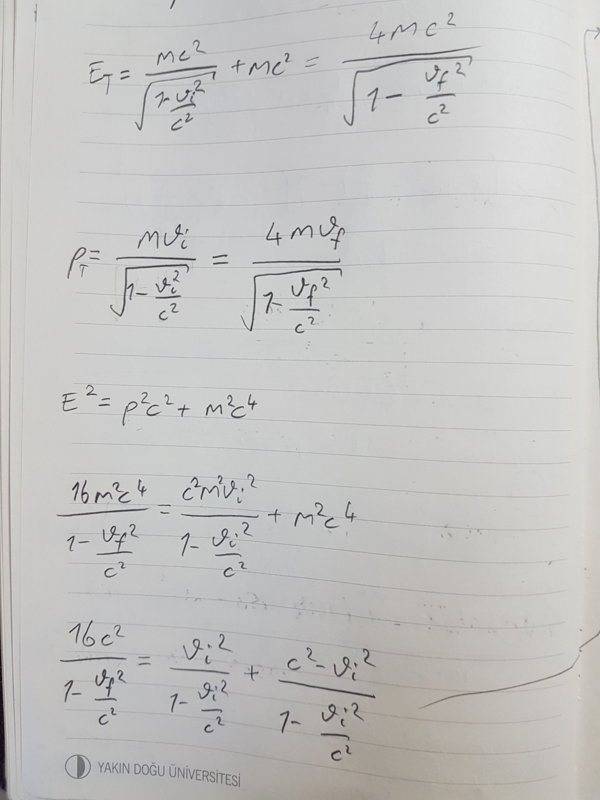 E_T = mc² / √(1 - v_i²/c²) + mc² = 4mc² / √(1 - v_f²/c²)
P_T = mv_i / √(1 - v_i²/c²) = 4mv_f / √(1 - v_f²/c²)
E² = p²c² + m²c⁴
16m²c⁴ / (1 - v_f²/c²) = c²m²v_i² / (1 - v_i²/c²) + m²c⁴
16c² / (1 - v_f²/c²) = v_i² / (1 - v_i²/c²) + (c² - v_i²) / (1 - v_i²/c²)
YAKIN DOĞU ÜNİVERSİTESİ